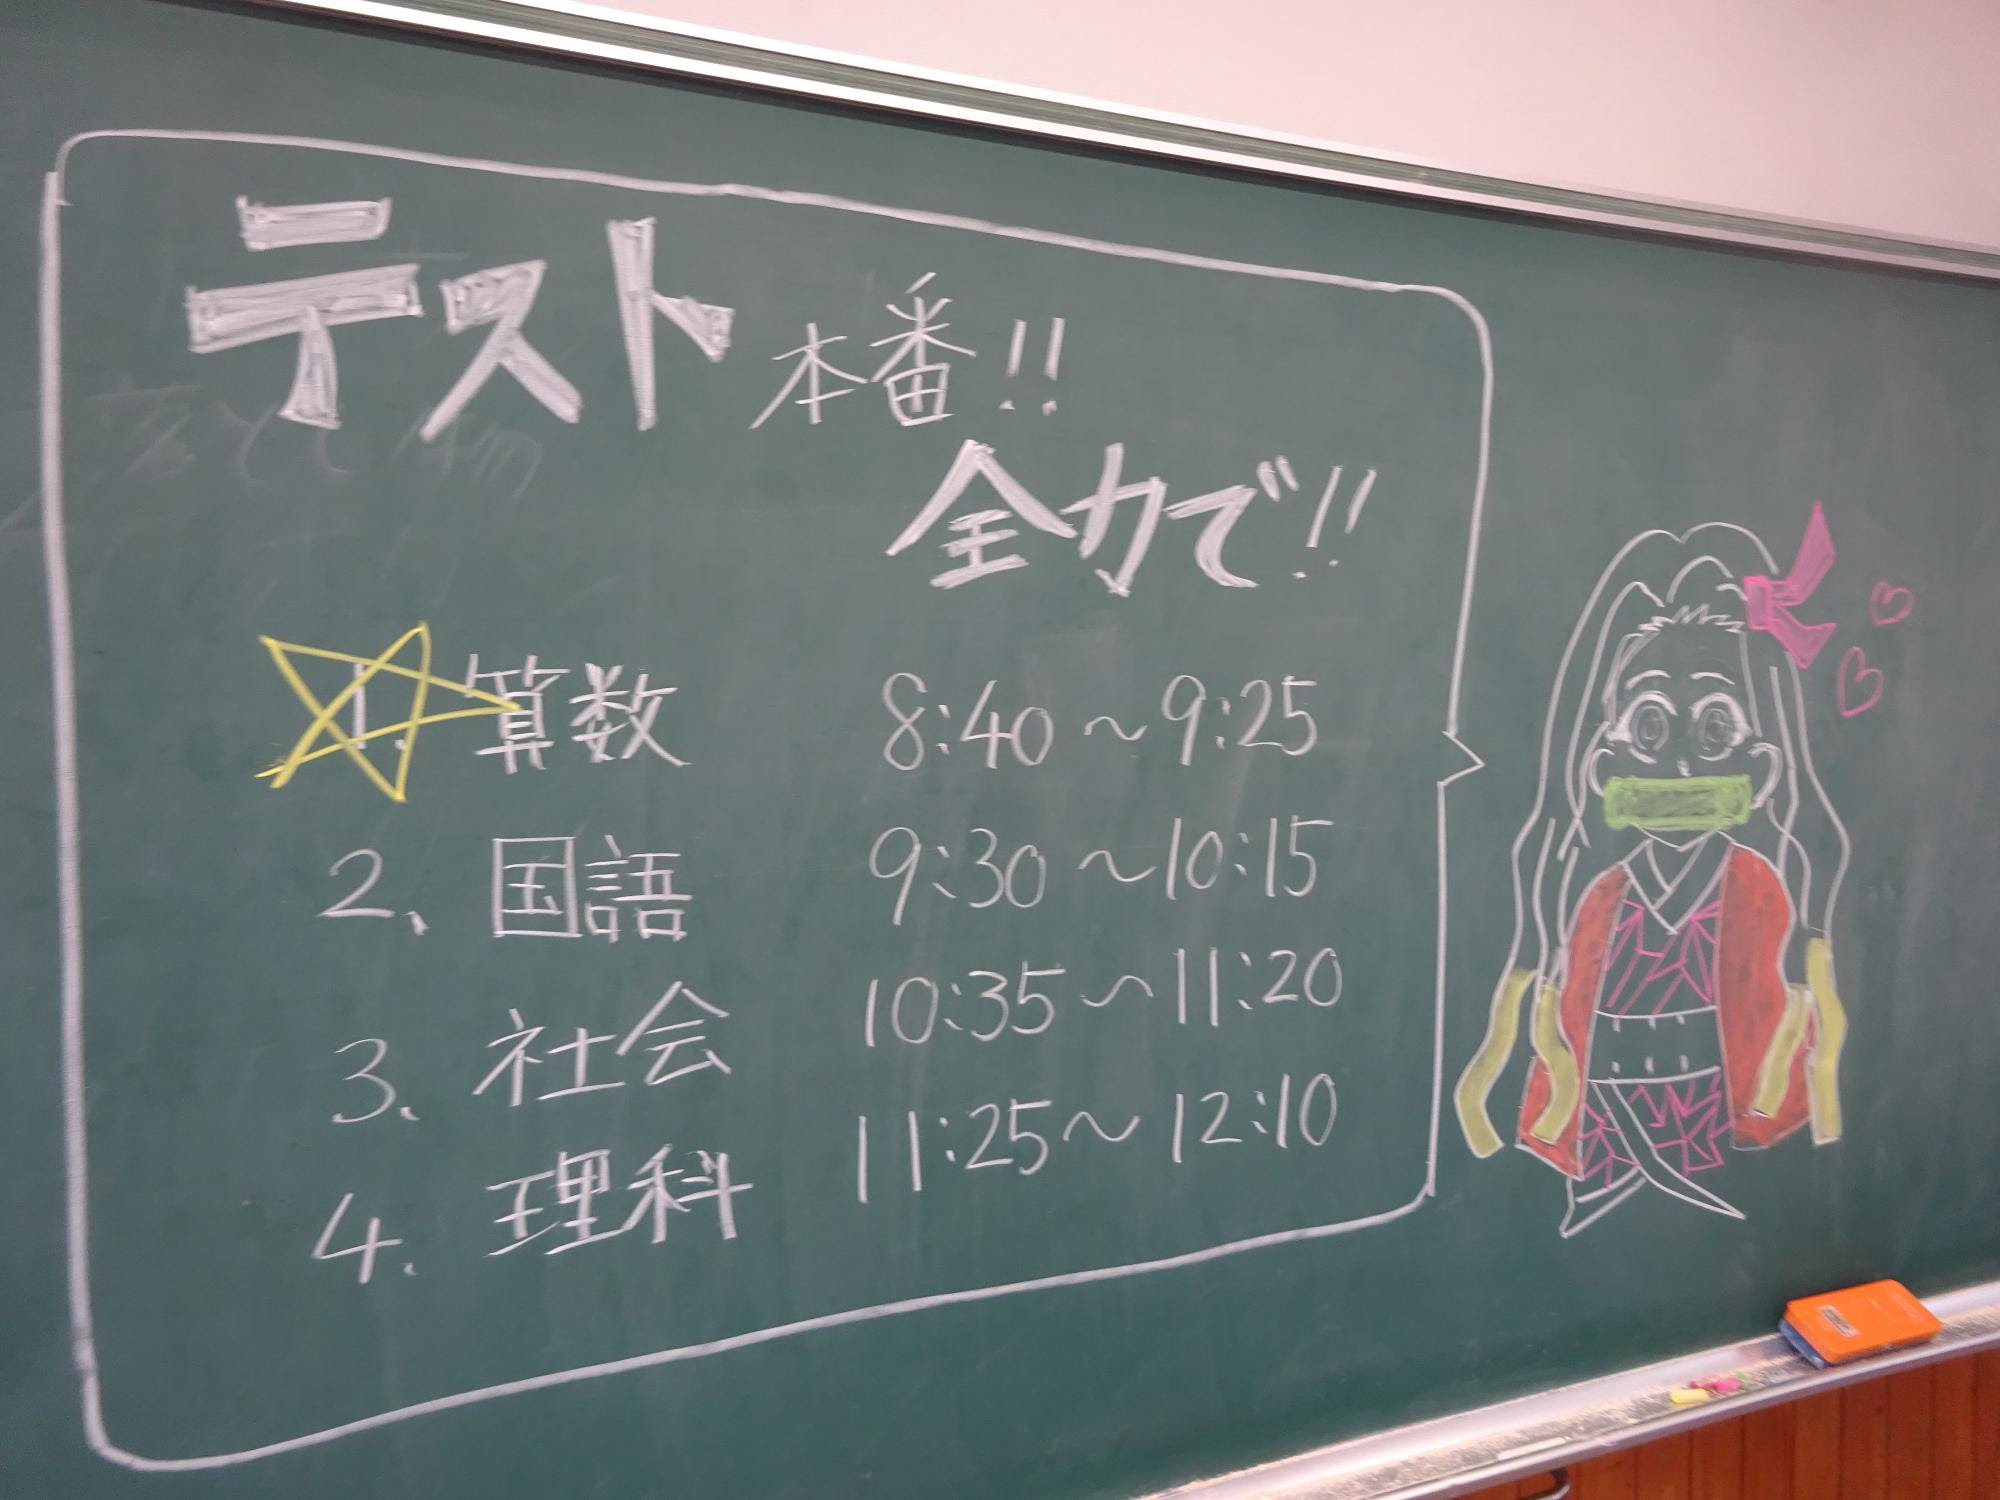 テスト本番!!
全力で!!
1. 算数 8:40～9:25
2、国語 9:30～10:15
3、社会 10:35～11:20
4. 理科 11:25～12:10